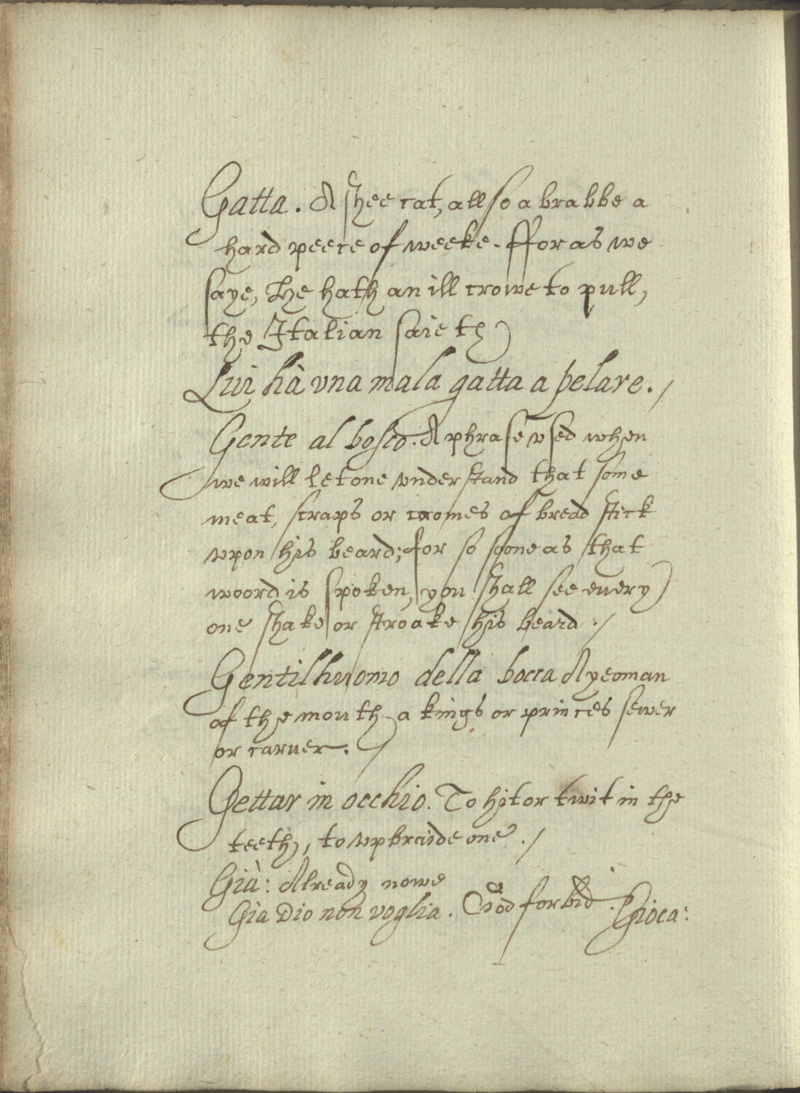 Gatta. A shee cat, allso a brabbe a
hard peece of weeke. ffor as we
saye, He hath an ill crowe to pull,
the Italian saieth
Lui hà vna mala gatta a pelare.
Gente al bosco. A phrase vsed when
we will let one vnderstand that some
meat, scraps or cromes of bread stick
vpon his beard; for so soone as that
woord is spoken, you shall see euery
one shake or stroake his beard.
Gentilhuomo della bocca A yeoman
of the mouth, a kings or princes sewer
or caruer.
Gettar in occhio. To hit or twit in the
teeth, to vpbraide one.
Già: Already nowe
Gia Dio non voglia. God forbid.
Gioca: